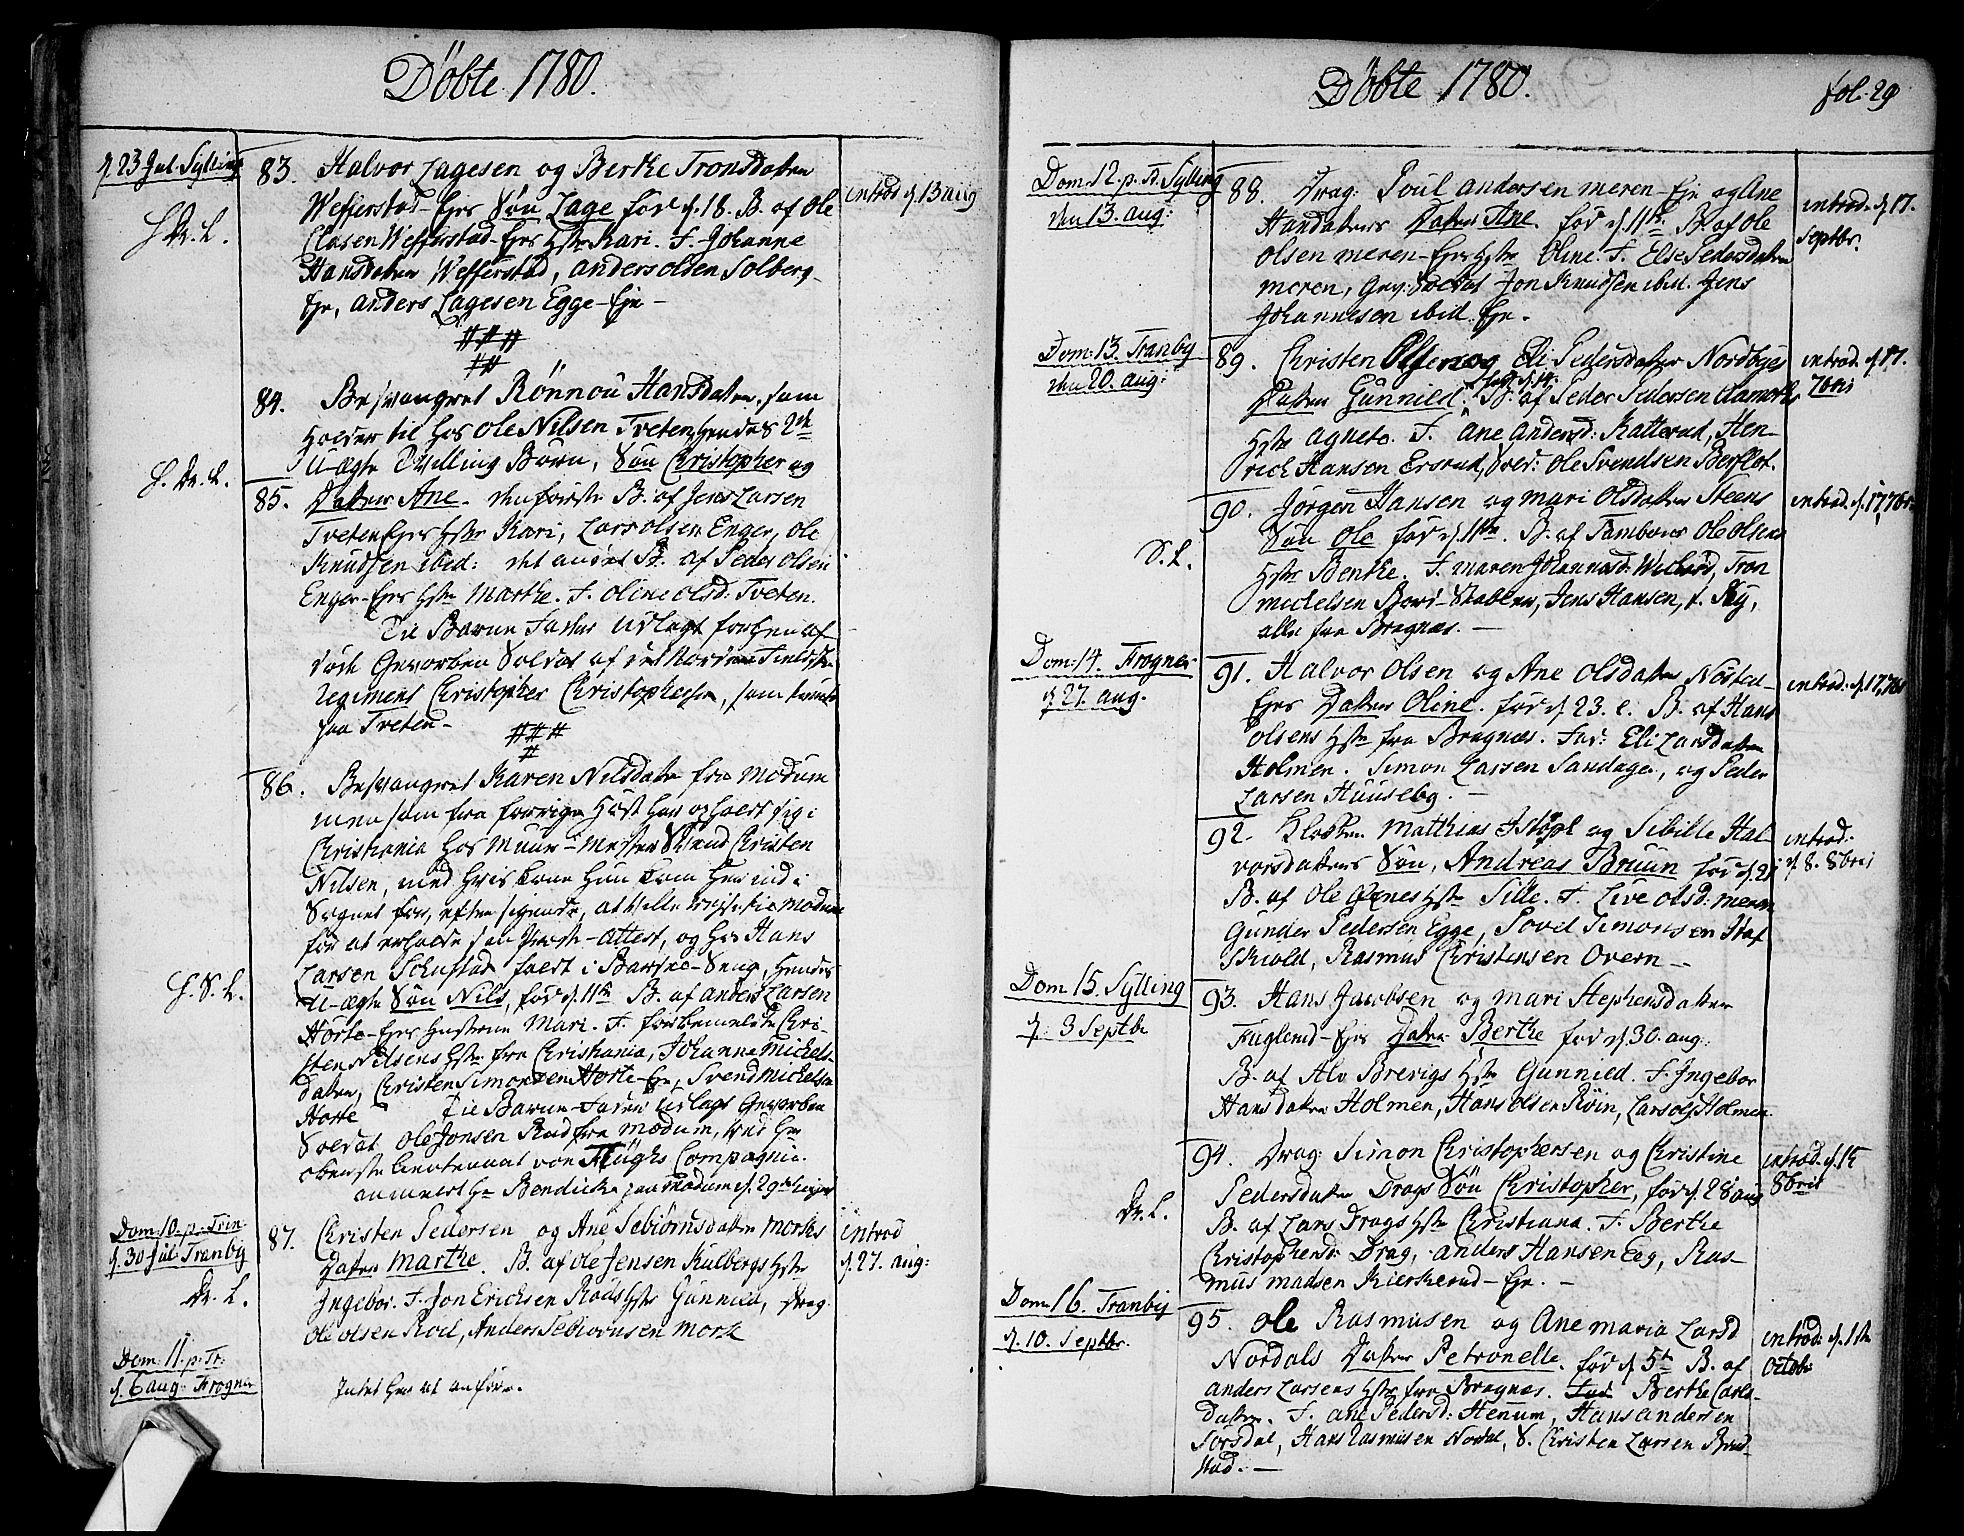 Döbte 1780.
d. 23 Jul. Sylling
83. Halvor Lagesen og Berthe Tronsdatter
Wefferstad-Ejes Søn Lage fød d. 18. B. af Ole
Clasen Wefferstad-Ejes Hstr Kari. F. Johanne
Hansdatter Wefferstad, Anders Olsen Solberg-
Eje, Anders Lagesen Egge-Eje -
introd d. 13 aug
84. Besvangret Rönnou Hansdatter, som
holder til hos Ole Nilsen Tveten, hendes 2de
U-ægte Tvilling Børn, Søn Christopher og
85. Datter Ane. den første B. af Jens Larsen
Tveten Ejes Hstr Kari, Lars Olsen Enger, Ole
Knudsen ibid: det andet B. af Peder Olsen
Enger-Ejes Hstr Marthe. F. Oline Olsd: Tveten.
Til Barne Fader Udlagt
Gevorben Soldat af det
Regiment Christopher Christophersen, som
paa Tveten -
86. Besvangret Karen Nilsdatter fra Modum
men som fra forrige Høst har opholdt sig i
Christiania hos Muur-Mester Svend Christen
Nilsen, med hvis Kone hun kom her ind i
Sognet for, efter sigende, at ville reise til Modum
for at erholde sin Præste-Attest, og hos Hans
Larsen Schustad faldt i Barsel-Seng, hendes
U-ægte Søn Nils, fød d. 11te B. af Anders Larsen
Horte-Ejes Hustrue Mari. F. forbemelte Chri-
sten Nilsens Hstr fra Christiania, Johanne Michels-
datter, Christen Simonsen Horte-Eje, Svend Michelsen
Horte Til Barne-Fader Udlagt Gevorben
Soldat Ole Jonsen Rud fra Modum, ved Hr
Oberste Lieutenant von Compagnie.
anmeldt Hr Bendicke paa Modum d. 29de
Dom: 10. p. Trin.
d. 30 Jul: Tranby
87. Christen Pedersen og Ane Sebiörnsdatter Morks
Datter Marthe. B. af Ole Jensen Kulbergs Hstr
Ingebor. F. Jon Ericksen Röds Hstr Gunnild, Drag:
Ole Olsen Röd, Anders Sebiörnsen Mork
introd
d. 27. aug:
Dom: 11. p. Tr:
d. 6 aug: Frogner
Intet her at anføre.
Döbte 1780.
fol. 29
Dom: 12. p. Tr. Sylling
den 13. aug:
88. Drag: Poul Andersen Meren-Eje og Ane
Hansdatters Datter Ane. fød d. 11te B. af Ole
Olsen Meren-Ejes Hstr Oline. F. Else Pedersdatter
Meren, Gev: Soldat Jon Knudsen ibid. Jens
Johannesen ibid. Eje.
introd. d. 17.
Septbr.
Dom: 13. Tranby
den 20. aug:
89. Christen Olsen og Eli Pedersdatter Nordbyes
Datter Gunnild. fød d. 14. B. af Peder Pedersen
Hstr Agnete. F. Ane Andersd: Katterud, Hen-
rich Hansen Ersrud, Sold: Ole Svendsen Berflot.
introd. d. 17.
7bris
90. Jörgen Hansen og Mari Olsdatter Steens
Søn Ole fød d. 11te. B. af Tambour Ole Olsens
Hstr Benthe. F. Maren Johannesd: Tron
Michelsen Bord-Stabler, Jens Hansen,
alle fra Bragnæs. -
introd. d. 17. 7bris
S. L.
Dom: 14. Frogner
d. 27. aug.
91. Halvor Olsen og Ane Olsdatter Nösted-
Ejes Datter Oline. fød d. 23. e. B. af Hans
Olsens Hstr fra Bragnæs. Fad: Eli Larsdatter
Holmen. Simon Larsen Sandager, og Peder
Larsen Huuseby. -
introd: d. 17. 7br
92. Klokker Matthias Istöpl og Sibille Hal-
vorsdatters Søn, Andreas Bruun fød d. 21
B. af Ole Hstr Sille. F. Live Olsd: Meren
Gunder Pedersen Egge, Povel Simonsen Haf
Skiold, Rasmus Christensen Overn -
introd.
d. 8. 8bris
Dom 15. Sylling
d. 3 Septbr
93. Hans Jacobsen og Mari Stephensdatter
Fuglerud-Ejes Datter Berthe fød d. 30. aug:
B. af Alv Brevigs Hstr Gunnild. F. Ingebor
Hansdatter Holmen, Hans Olsen Röin, Lars Ols. Holmen.
94. Drag: Simon Christophersen og Christine
Pedersdatter Drags Søn Christopher, fød d. 28 aug
B. af Lars Drags Hstr Christiana. F. Berthe
Christophersd: Drag, Anders Hansen Eeg, Ras-
mus Madsen Kierkerud-Eje. -
introd. d. 15
8bris
Dr. L.
Dom: 16. Tranby
d. 10. Septbr.
95. Ole Rasmusen og Ane Maria Larsd
Nordals Datter Petronelle. fød d. 5te B. af
Anders Larsens Hstr fra Bragnæs. Berthe Carls-
datter. F. Ane Pedersd: Henum, Hans Andersen
Sorsdal, Hans Rasmusen Nordal, S. Christen Larsen
stad. -
introd: d. 1ste
Octobr